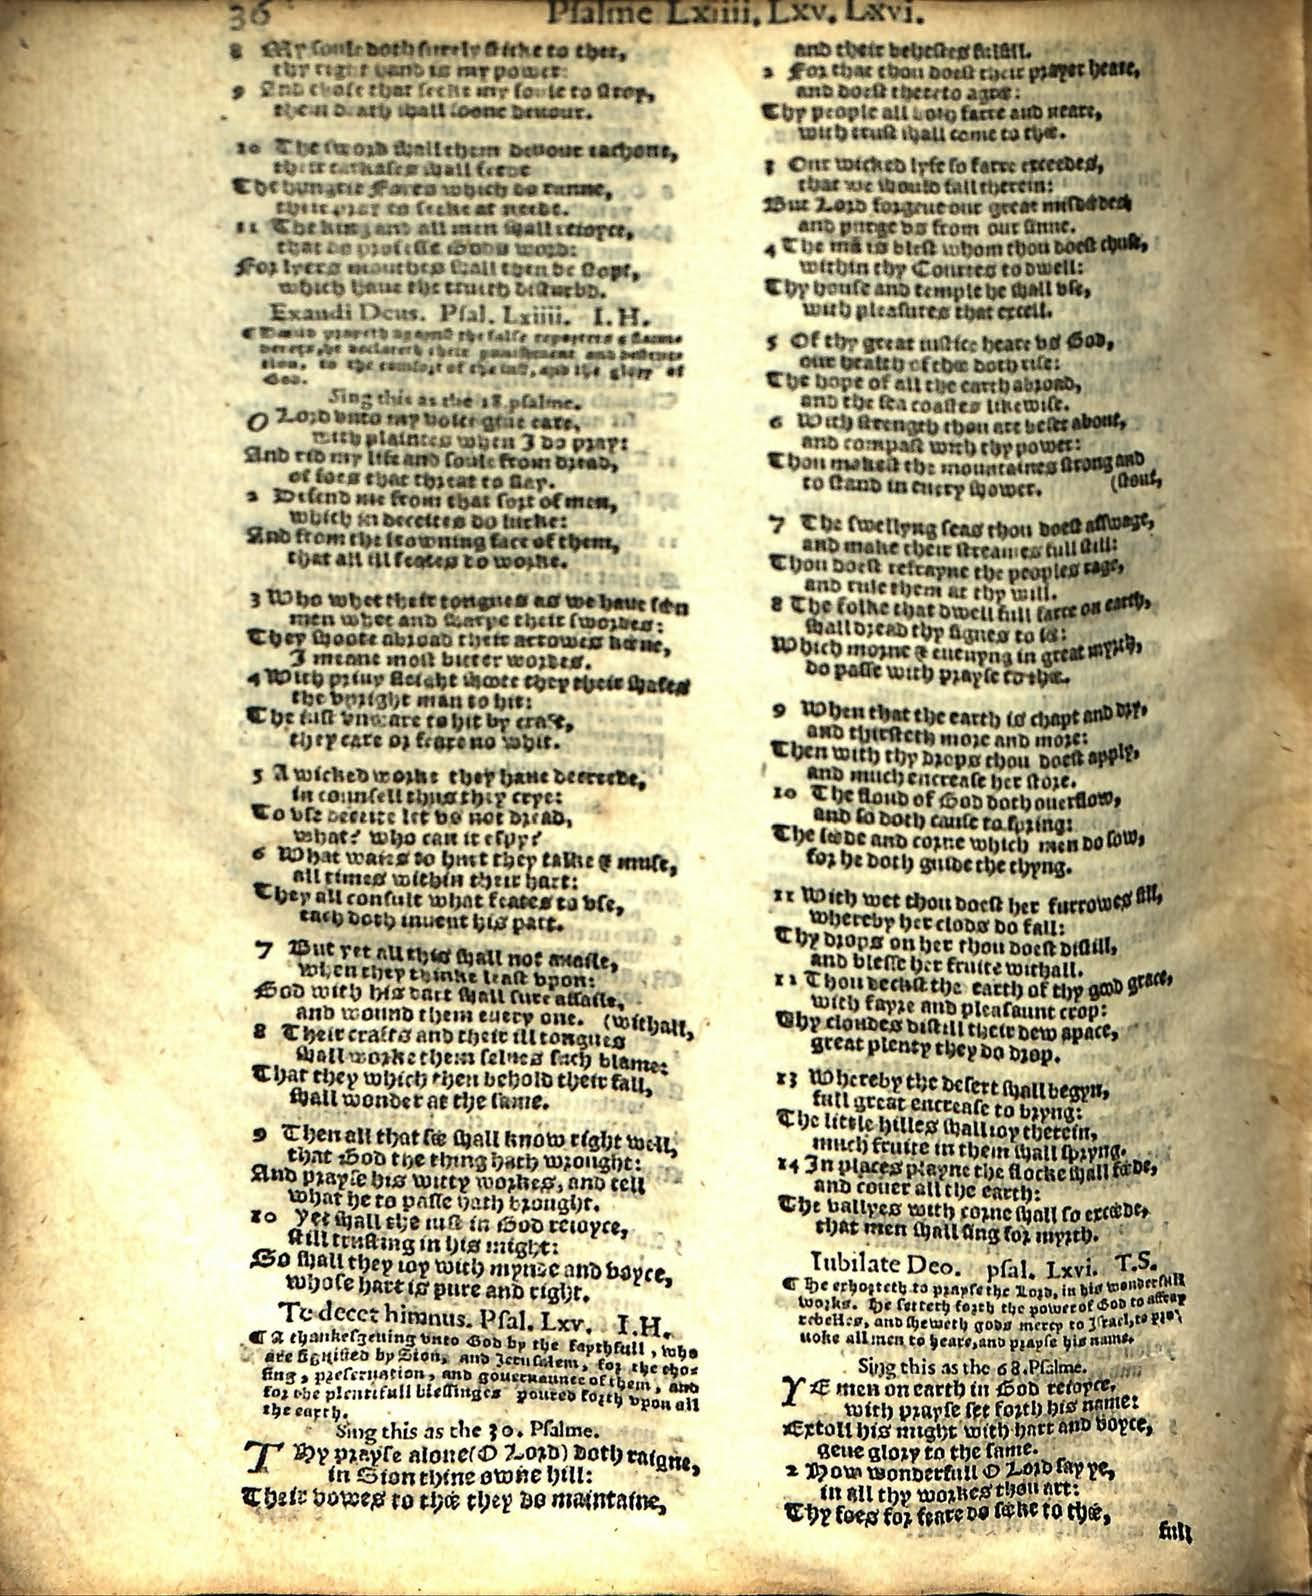 36 Psalme Lxiiii. Lxv. Lxvi.
8 My soule doth surely sticke to thee,
thy right hand is my power:
9 And those that seeke my soule to stroy,
them death shall soone deuour.
10 The sword shall them deuour eachone,
their carkases shall feede
The hungrie Foxes which do runne,
their pray to seeke at neede.
11 The king and all men shall reioyce,
that do professe Gods word:
For lyers mouthes shall then be stopt,
which haue the truth disturbd.
Exaudi Deus. Psal. Lxiiii. I.H.
¶ Dauid prayeth against the false reporters & slaunderers, he declareth their punishment and destruction, to the comfort of the iust, and the glory of God.
Sing this as the 18. psalme.
O Lord vnto my voice giue eare,
with plaintes when I do pray:
And rid my life and soule from dread,
of foes that threat to slay.
2 Defend me from that sort of men,
which in deceites do lurke:
And from the frowning face of them,
that all ill feates do worke.
3 Who whet their tongues as we haue sẽen
men whet and sharpe their swordes:
They shoote abroad their arrowes keene,
I meane most bitter wordes.
4 With priuy sleight shoote they their shaftes
the vpright man to hit:
The iust vnware to hit by craft,
they care or feare no whit.
5 A wicked worke they haue decreede,
in counsell thus they crye:
To vse deceite let vs not dread,
what? who can it espy?
6 What waies to hurt they talke & muse,
all times within their hart:
They all consult what feates to vse,
each doth inuent his part.
7 But yet all this shall not auaile,
when they thinke least vpon:
God with his dart shall sure assaile,
and wound them euery one. (withall,
8 Their crafts and their ill tongues
shall worke them selues such blame:
That they which then behold their fall,
shall wonder at the same.
9 Then all that see shall know right well,
that God the thing hath wrought:
And prayse his witty workes, and tell
what he to passe hath brought.
10 Yet shall the iust in God reioyce,
still trusting in his might:
So shall they ioy with mynde and voyce,
whose hart is pure and right.
Te decet himnus. Psal. Lxv. I.H.
¶ A thankesgeuing vnto God by the faythfull, who
are signified by Sion, and Ierusalem, for the cho-
sing, preseruation, and gouernaunce of them, and
for the plentifull blessinges poured forth vpon all
the earth.
Sing this as the 30. Psalme.
THy prayse alone (O Lord) doth raigne,
in Sion thine owne hill:
Their vowes to thee they do maintaine,
and their behestes fulfill.
2 For that thou doest their prayer heare,
and doest thereto agree:
Thy people all both farre and neare,
with trust shall come to thee.
3 Our wicked lyfe so farre exceedes,
that we should fall therein:
But Lord forgeue our great misdeedes
and purge vs from our sinne.
4 The mã is blest whom thou doest chuse,
within thy Courtes to dwell:
Thy house and temple he shall vse,
with pleasures that excell.
5 Of thy great iustice heare vs God,
our health of thee doth rise:
The hope of all the earth abroad,
and the sea coastes likewise.
6 With strength thou art beset about,
and compast with thy power:
Thou makest the mountaines strong and
to stand in euery shower. (stout,
7 The swellyng seas thou doest asswage,
and make their streames full still:
Thou doest refrayne the peoples rage,
and rule them at thy will.
8 The folke that dwell full farre on earth,
shall dread thy signes to see:
Which morne & euenyng in great myrth,
do passe with prayse to thee.
9 When that the earth is chapt and dry,
and thirsteth more and more:
Then with thy drops thou doest apply,
and much encrease her store.
10 The floud of God doth ouerflow,
and so doth cause to spring:
The seede and corne which men do sow,
for he doth guide the thyng.
11 With wet thou doest her furrowes fill,
whereby her clods do fall:
Thy drops on her thou doest distill,
and blesse her fruite withall.
12 Thou deckst the earth of thy good grace,
with fayre and pleasaunt crop:
Thy cloudes distill their dew apace,
great plenty they do drop.
13 Whereby the desert shall begyn,
full great encrease to bryng:
The little hilles shall ioy therein,
much fruite in them shall spryng.
14 In places playne the flocke shall feede,
and couer all the earth:
The vallyes with corne shall so exceede,
that men shall sing for myrth.
Iubilate Deo. psal. Lxvi. T.S.
¶ He exhorteth to prayse the Lord, in his wonderfull
works. He setteth forth the power of God to affray
rebelles, and sheweth gods mercy to Israel, to pro-
uoke all men to heare, and prayse his name.
Sing this as the 68. Psalme.
YE men on earth in God reioyce,
with prayse set forth his name:
Extoll his might with hart and voyce,
geue glory to the same.
2 How wonderfull O Lord say ye,
in all thy workes thou art:
Thy foes for feare do seeke to thee,
full